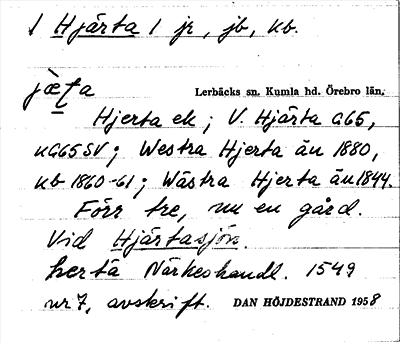 1 Hjärta 1 jr, jb, kb.
jæ̀ta Lerbäcks sn. Kumla hd. Örebro län.
Hjerta ek; V. Hjärta G65,
KG65SV; Westra Hjerta än 1880,
kb 1860-61; Wästra Hjerta än 1844.
Förr tre, nu en gård.
Vid Hjärtasjön.
herta Närkeshandl. 1549
nr 7, avskrift. DAN HÖJDESTRAND 1958